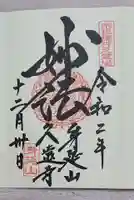 令和二年
身延山
妙法
久遠寺
十二月卅日